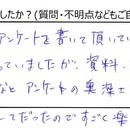 したか？(質問・不明点などもご自
アンケートを書いて頂いてい
っていましたが、資料、
なと アンケートの奥深さ
てだったのですごく楽